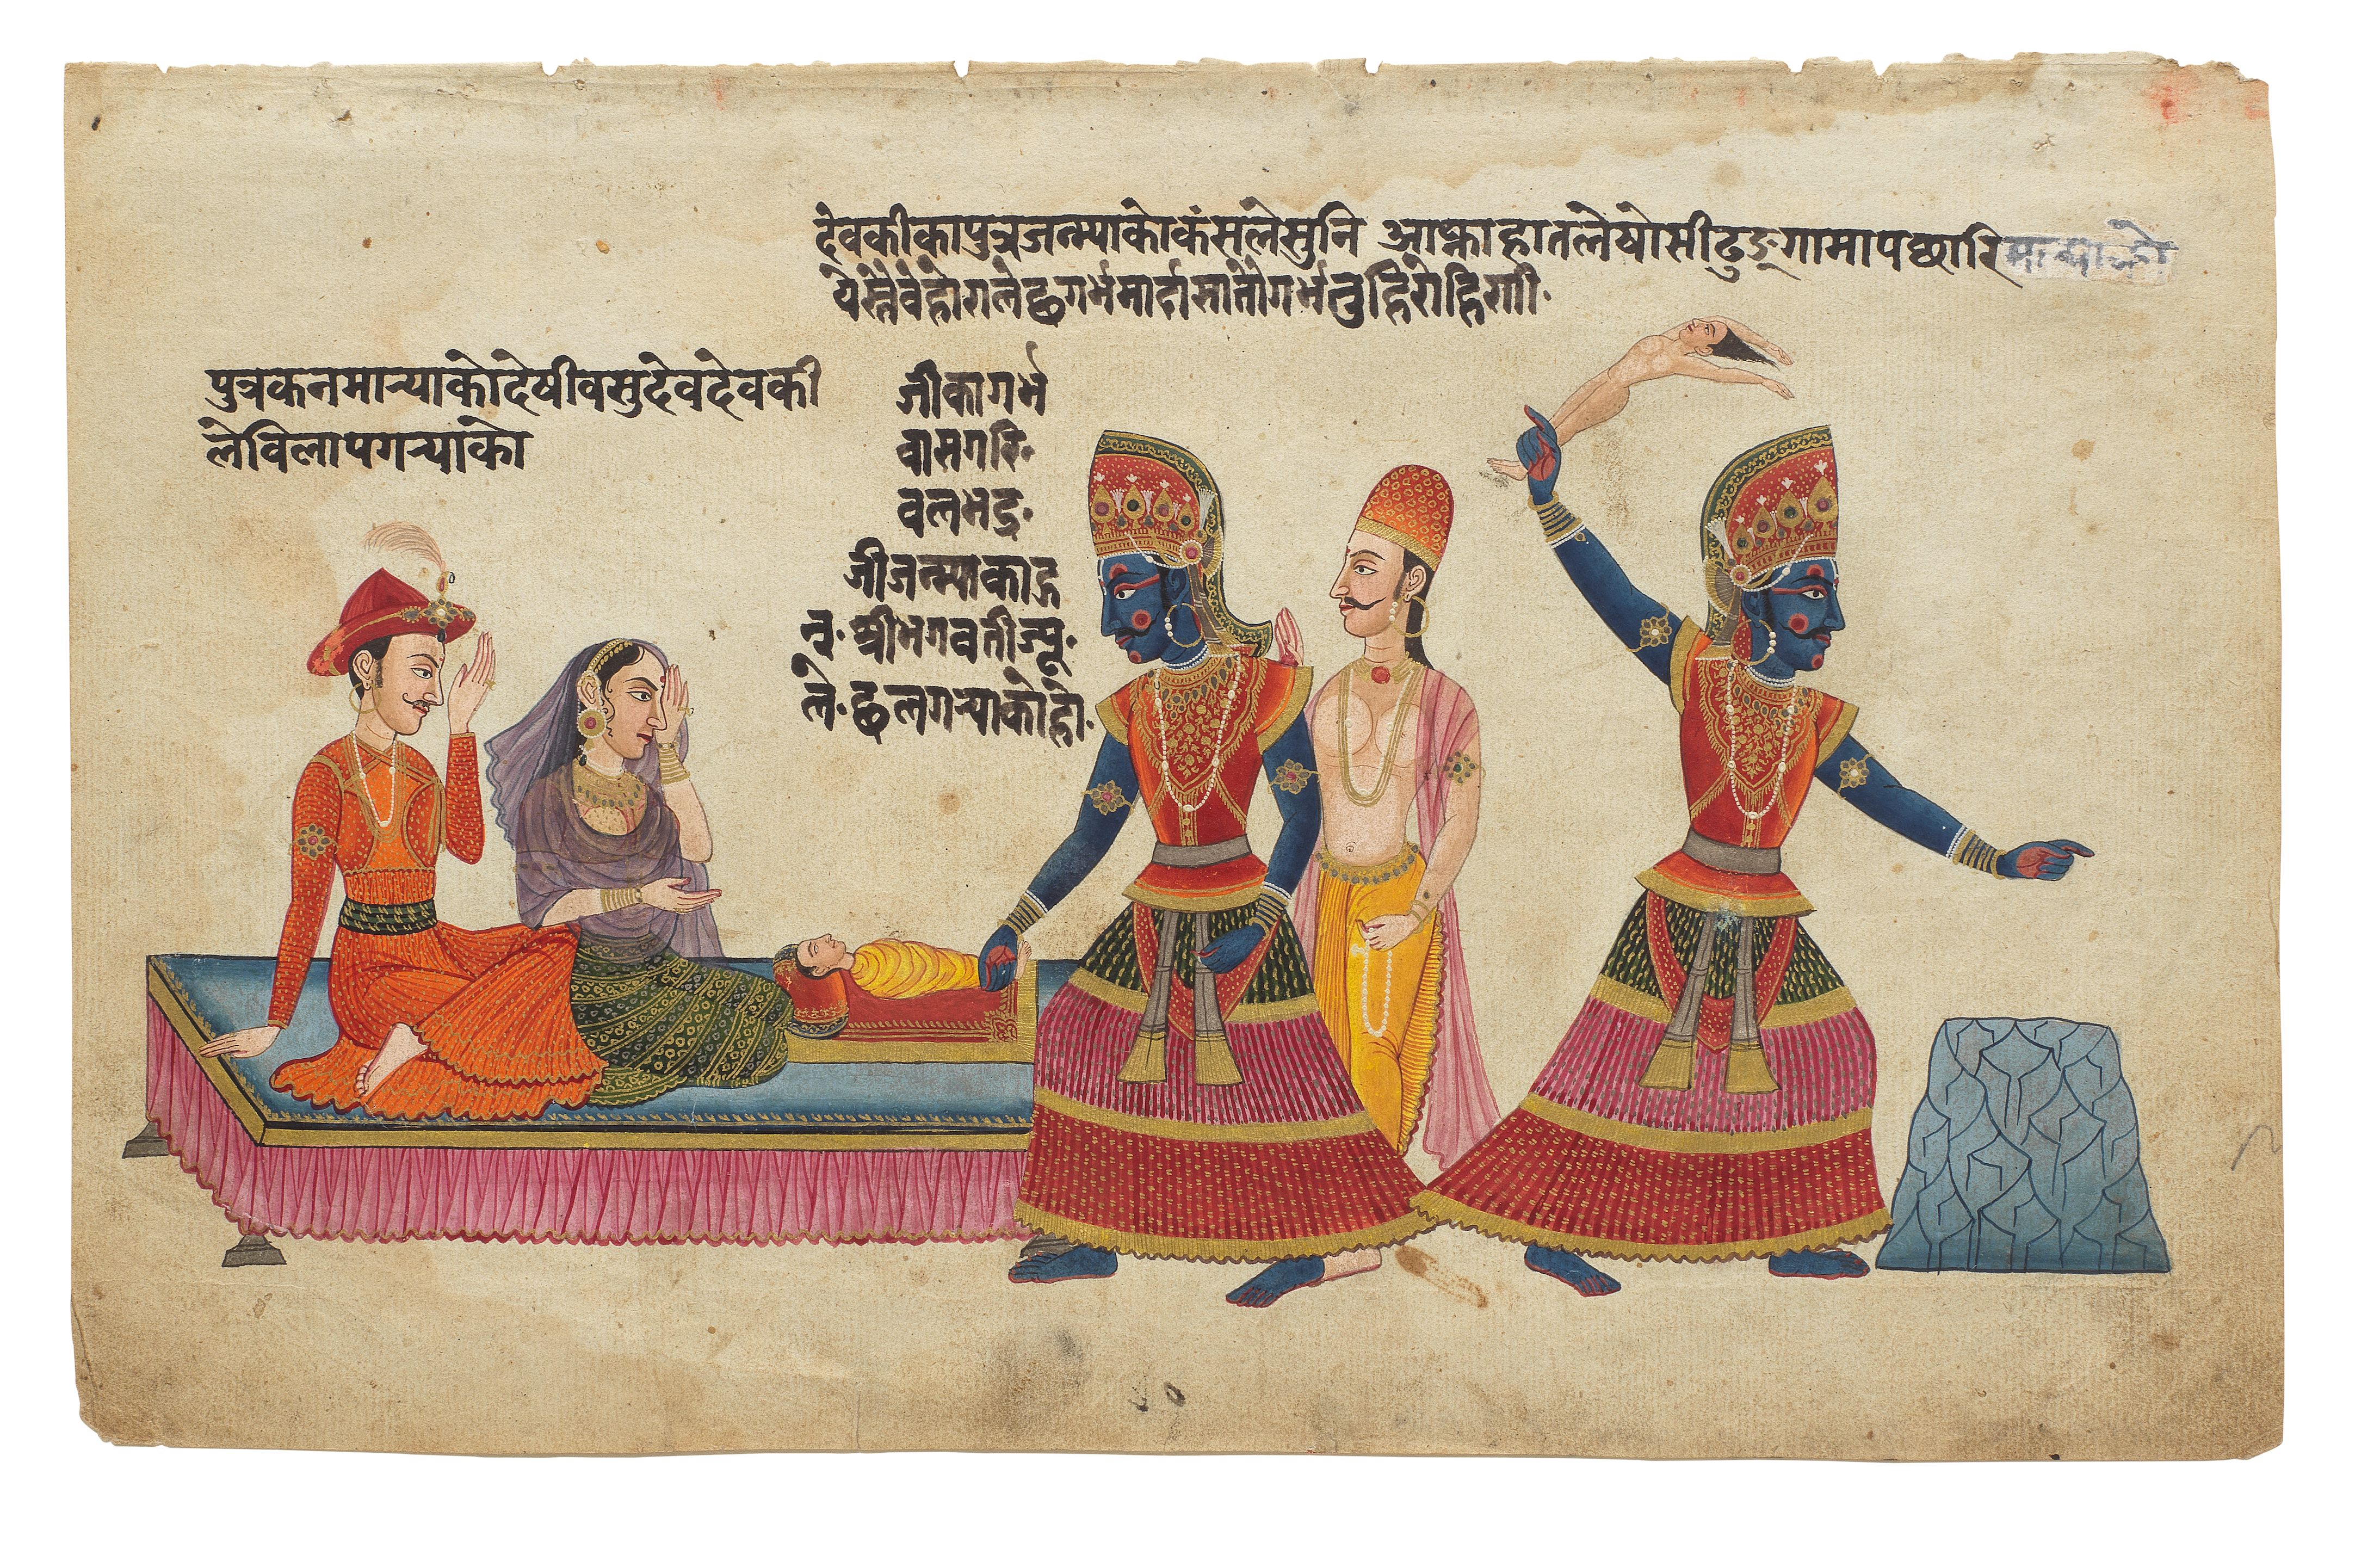 देवकीकापुत्रजन्म्याकोकंसलेसुनि आफ्नाहातलेघोसीढुङ्गामापछारिमार्‍याको
येस्तैवेहोरालेछगर्भमार्दासातौगर्भतुह्निरोहिणी.
जीकागर्भ
वासगरि.
वलभद्र.
जीजन्म्याकाहु
न्. श्रीभगवतीज्यू.
ले. छलगर्‍याकोहो.
पुत्रकनमार्‍याकोदेषीवसुदेवदेवकी
लेविलापगर्‍याको